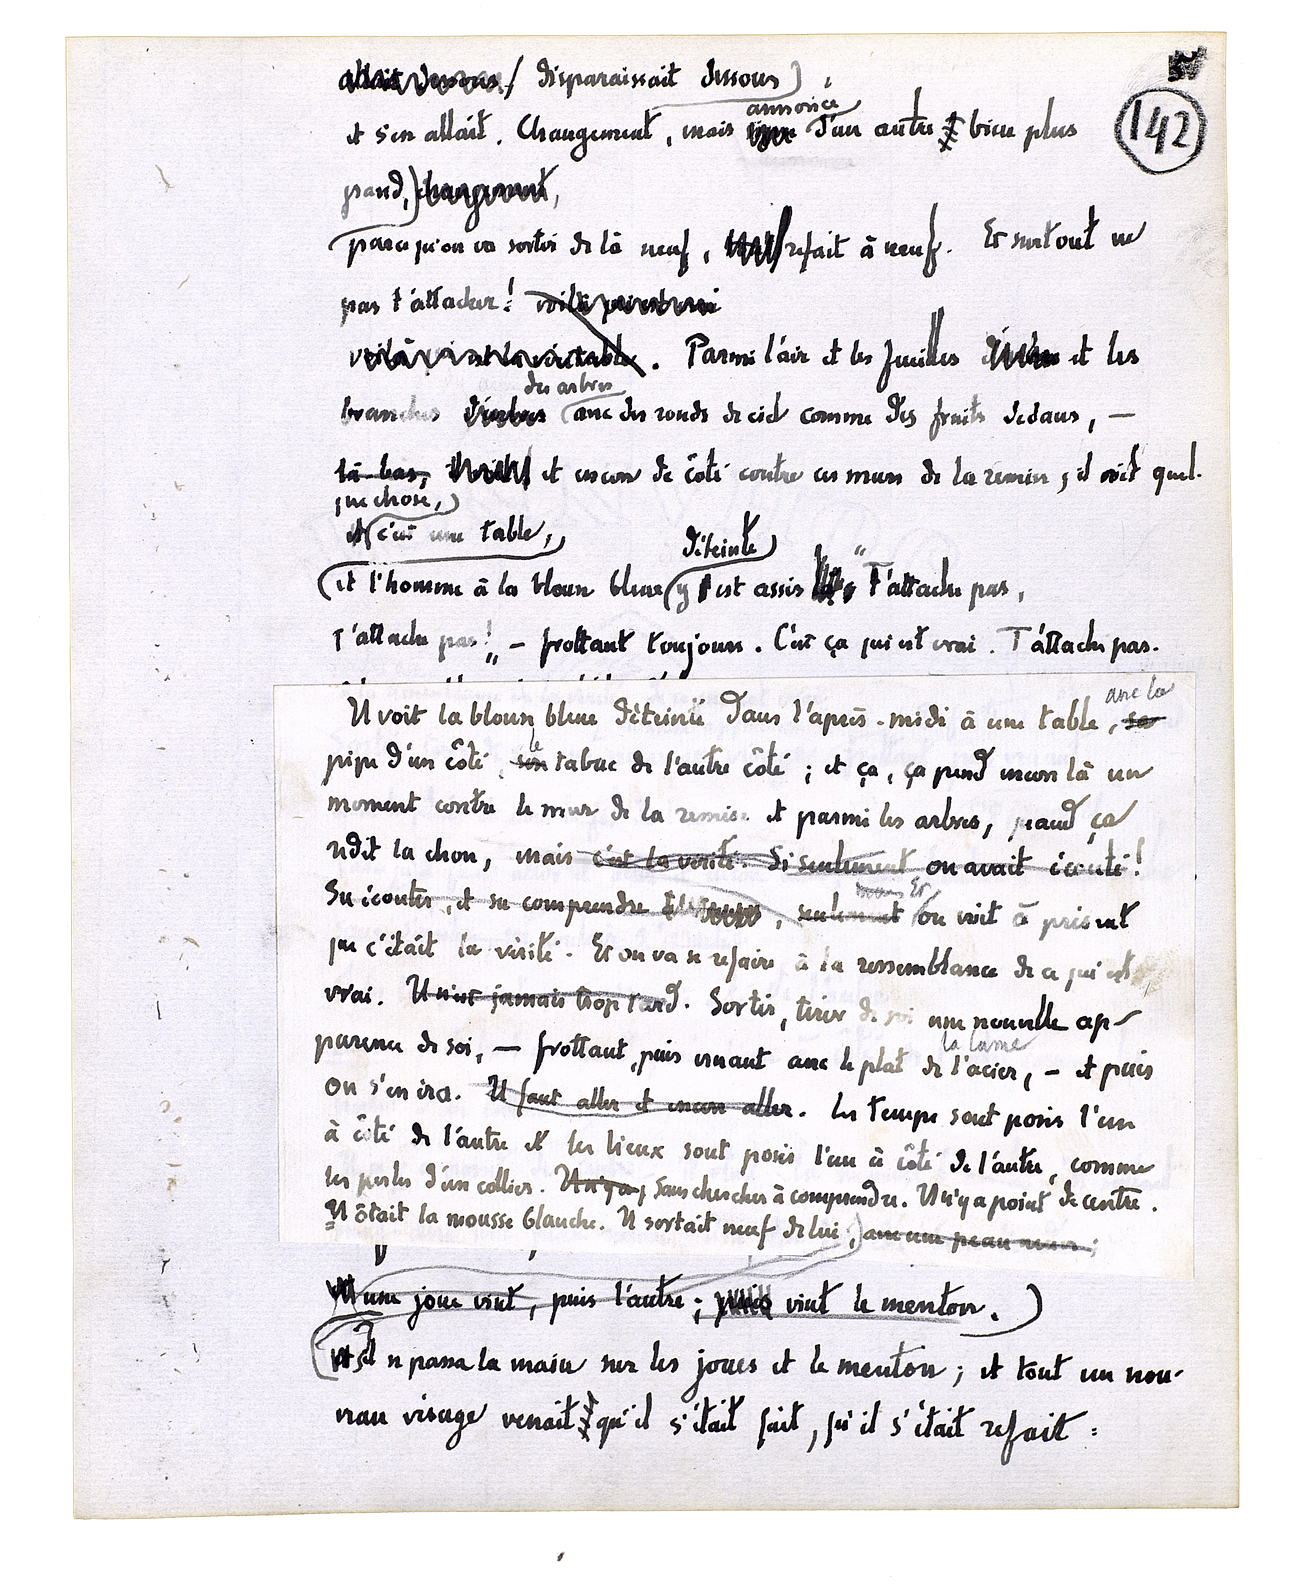 disparaissait dessous) ;
142
annonce
et s'en allait. Changement, mais d'un autre bien plus
grand,) changement,
parce qu'on va sortir de là neuf, refait à neuf. Et surtout ne
pas t'attacher ! voilà
voilà qui est la véritable. Parmi l'air et les feuilles et les
des arbres
branches d'arbres avec des ronds de ciel comme des fruits dedans, —
là-bas, et encore de côté contre ces murs de la remise, il voit quel-
que chose,)
et c'est une table,
déteinte)
et l'homme à la blouse bleue (y est assis " T'attache pas,
t'attache pas ! " — frottant toujours. C'est ça qui est vrai. T'attache pas.
avec la
Il voit la blouse bleue déteinte dans l'après-midi à une table, sa
le
pipe d'un côté, son tabac de l'autre côté ; et ça, ça pend encore là un
moment contre le mur de la remise et parmi les arbres, quand ça
redit la chose, mais c'est la vérité. Si seulement on avait écouté !
Et
Se écouter, et se comprendre , seulement on voit à présent
que c'était la vérité. Et on va se refaire à la ressemblance de ce qui est
vrai. Il n'est jamais trop tard. Sortir, tirer de soi une nouvelle ap-
la lame
parence de soi, — frottant, puis venant avec le plat de l'acier, — et puis
on s'en ira. Il faut aller et encore aller. Les temps sont posés l'un
à côté de l'autre et les lieux sont posés l'un à côté de l'autre, comme
les perles d'un collier. Il n'y a, sans chercher à comprendre. Il n'y a point de centre.
Il ôtait la mousse blanche. Il sortait neuf de lui, avec une peau neuve ;
une joue vint, puis l'autre ; puis vint le menton. )
Il se passa la main sur les joues et le menton ; et tout un nou-
veau visage venait qu'il s'était fait, qu'il s'était refait :